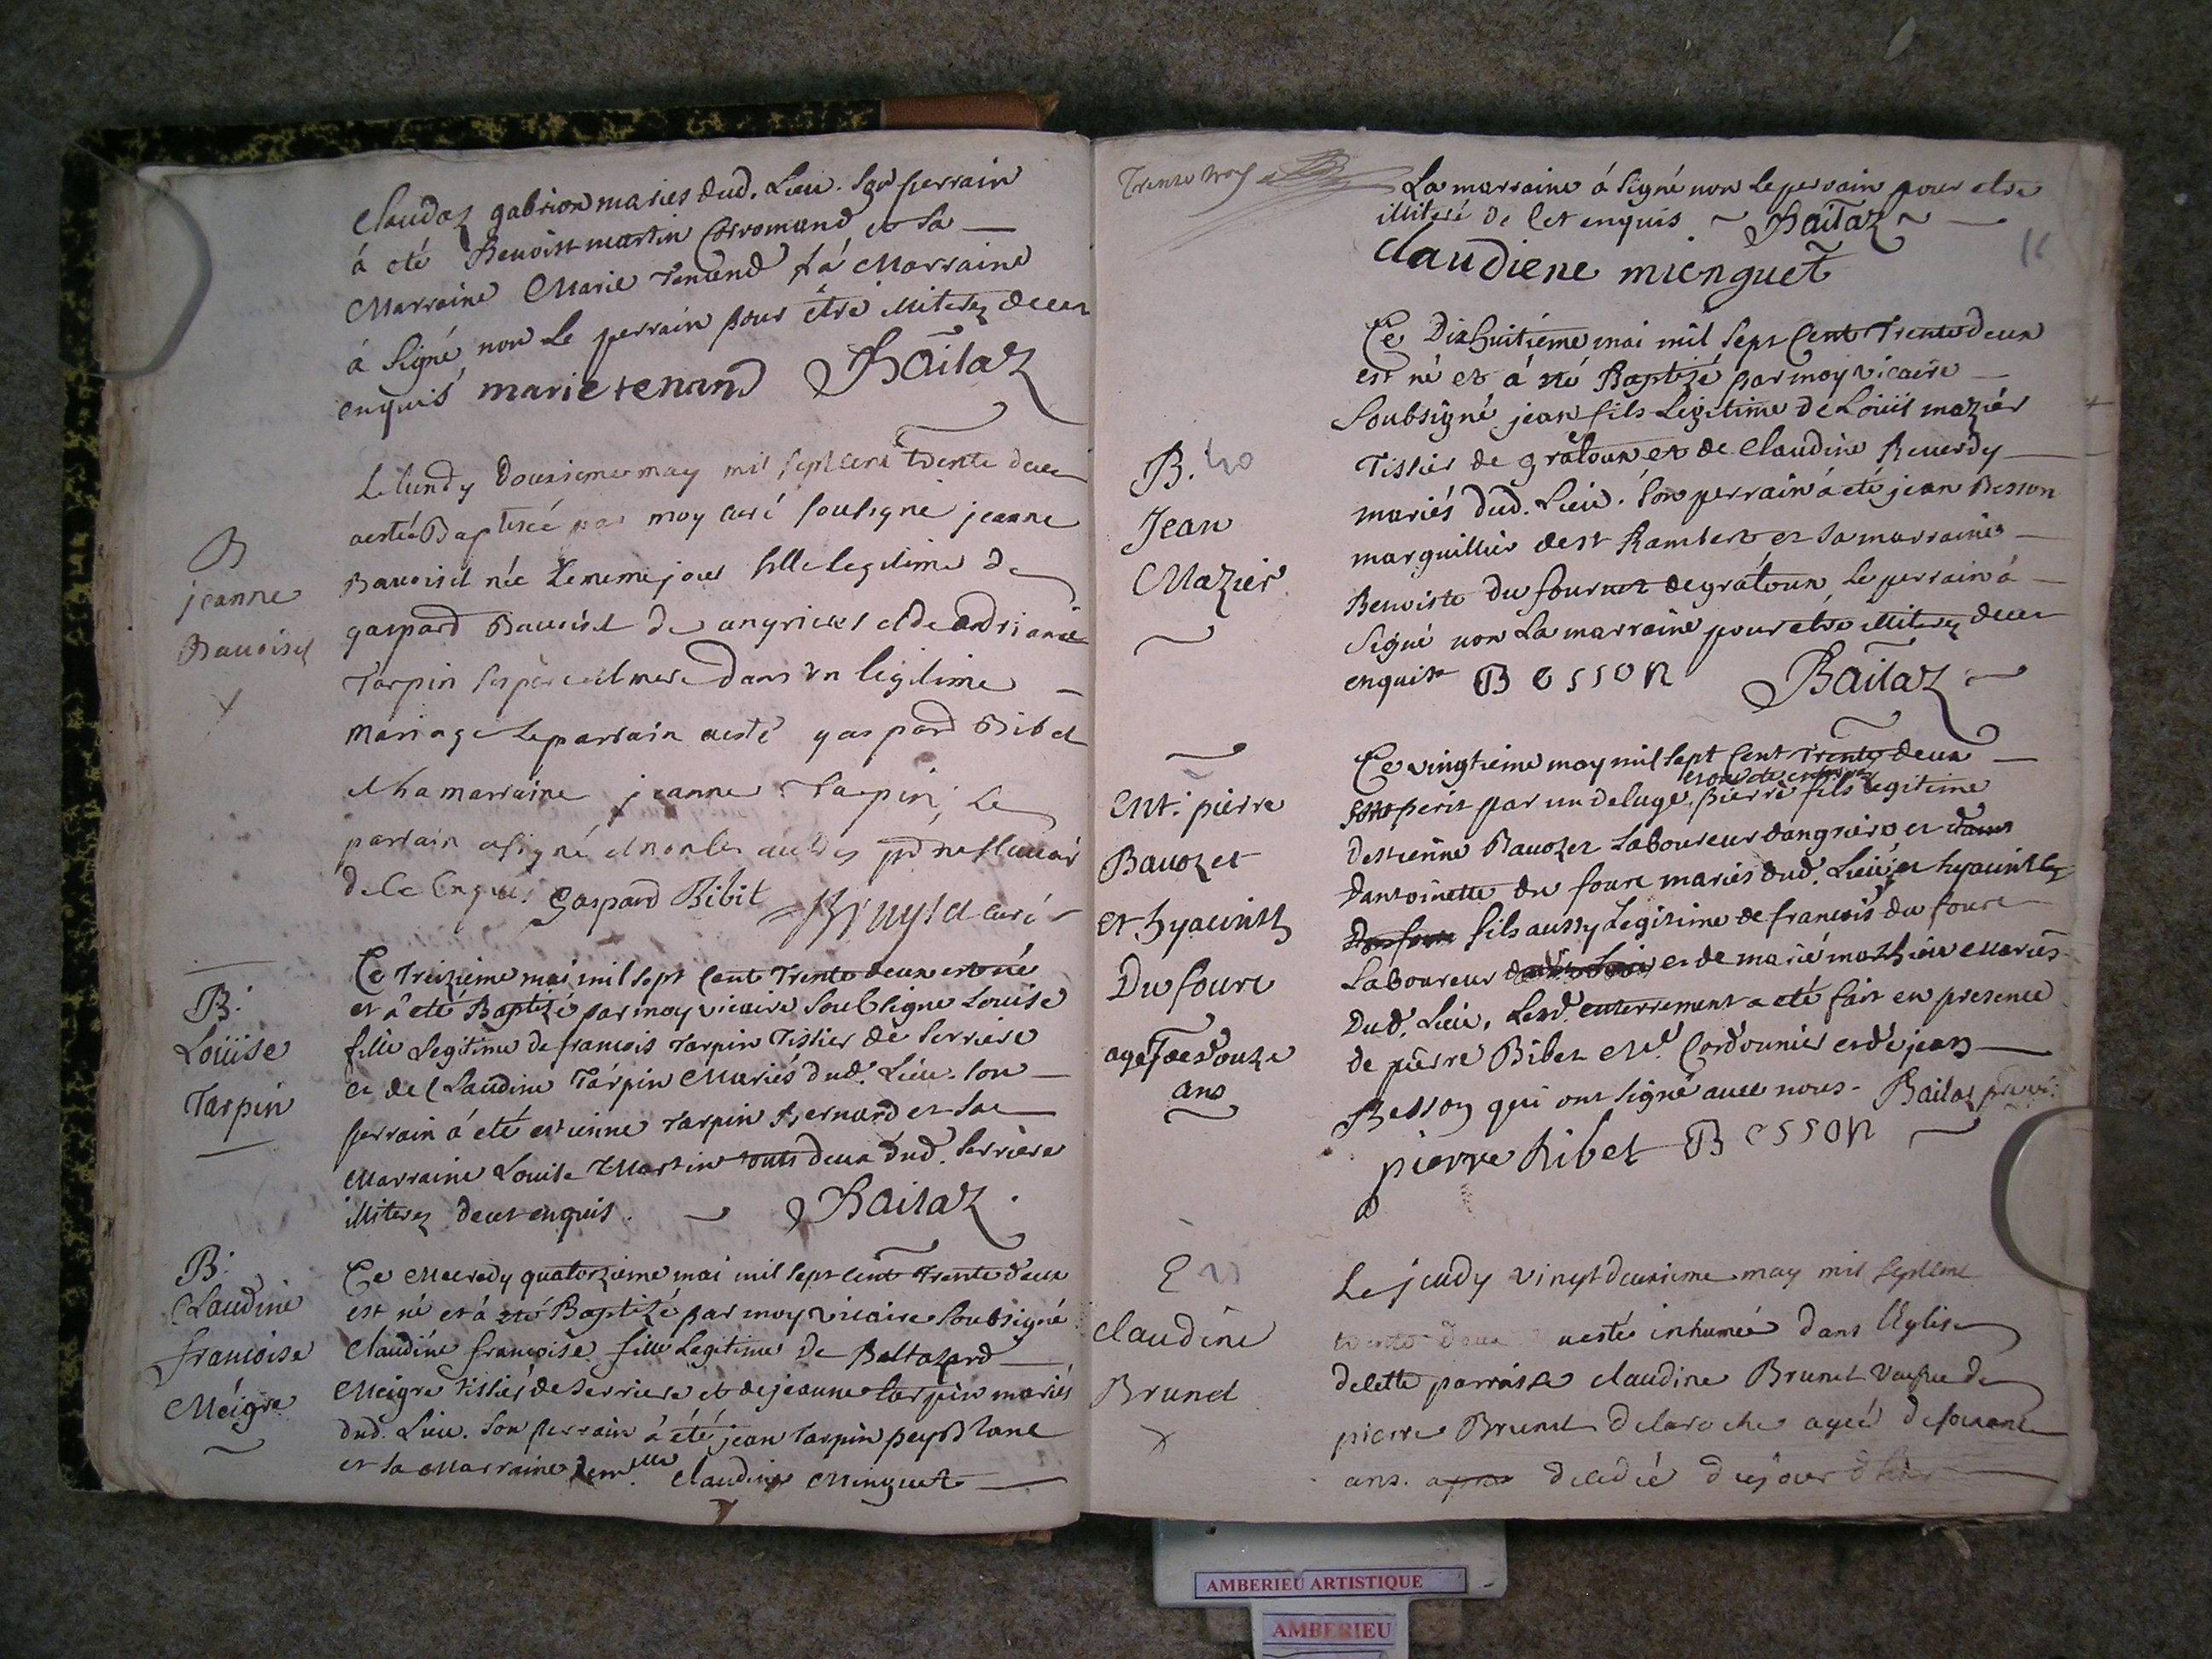 Claudaz gabrion maries dud. Lieu. Son perrain
à eté Benoist martin Corromand et sa
Marraine Marie Tenand la Marraine
à Signé non Le perrain pour étre illiterez de cet
enquis marie tenand Bailaz
Le lundy Douzieme may mil sept cent trente deux
B
aesté Baptisée par moy curé sousigné jeanne
jeanne
Bauoisel née Le meme jour fille legitime de
Bauoisel
gaspard Bauoisel de angrieres et de andrianne
Tarpin ses père et mere dans un legitime
mariage Le parrain aesté gaspard Bibet
et La marraine jeanne Tarpin, Le
parrain a signé et non les
de ce Enquis Gaspard Bibit curé
Ce Treizieme mai mil sept Cent Trente deux est né
B.
et à eté Baptizé par moy vicaire Soubsigné Louise
Loüise
fille Legitime de francois Tarpin Tissier de Serriere
Tarpin
et de Claudine Tarpin Mariés dud. Lieu. son
perrain à eté estienne Tarpin Bernard et sa
Marraine Louise Martin touts deux dud. Serriere
illiterez de cet enquis. Bailaz
B.
Ce Mecredy quatorzieme mai mil sept cent trente deux
Claudine
est né et à eté Baptizé par moy Vicaire Soubsigné
francoise
Claudine françoise fille Legitime De Baltazard
Meigre
Meigre tissier de Serriere et de jeanne tarpin mariés
dud. Lieu. Son perrain à été jean Tarpin peyblanc
et sa Marraine Claudine Minguet
Trente trois
La marraine à Signé non Le perrain pour etre
illiteré De Cet enquis. Bailaz
Claudiene mienguet
Ce Dixhuitieme mai mil Sept Cent Trente deux
est né et à eté Baptizé par moy vicaire
Soubsigné jean fils Legitime de Loüis maziér
B. 40
Tissier de gratoux et de Claudine Reverdy
Jean
mariés dud. Lieu. Son perrain à eté jean Besson
Mazier
marguillier de st Rambert et sa marraine
Benoiste du fournet de gratoux, Le perrain à
Signé non La marraine pour etre illiterez de cet
enquist Besson Bailaz
Ce vingtieme may mil sept Cent Trente deux
ont eté enterrez
Ent. pierre
sont perit par un deluge. pierre fils legitime
Bauozet
destienne Bauozet Laboureur dangriere et
Dantoinette du fourc mariés dud. Lieu, et hyacinthe
et hyacinth
fils aussy Legitime de francois du fourc
Du fourc
Laboureur et de marie mathieu Mariés
Dud. Lieu, Led. enterrement a eté fait en presence
agé de douze
de pierre Bibet Cordonnier et de jean
ans
Besson qui ont signé avec nous. Bailaz
pierre bibet Besson
E
Le jeudy vingt deuxieme may mil sept cent
Claudine
trente deux aesté inhumée dans l'Eglise
Brunet
de cette parroisse claudine Brunet Veufue de
pierre Brunet de la roche agée de soixante
ans. decedée du jour d'hier